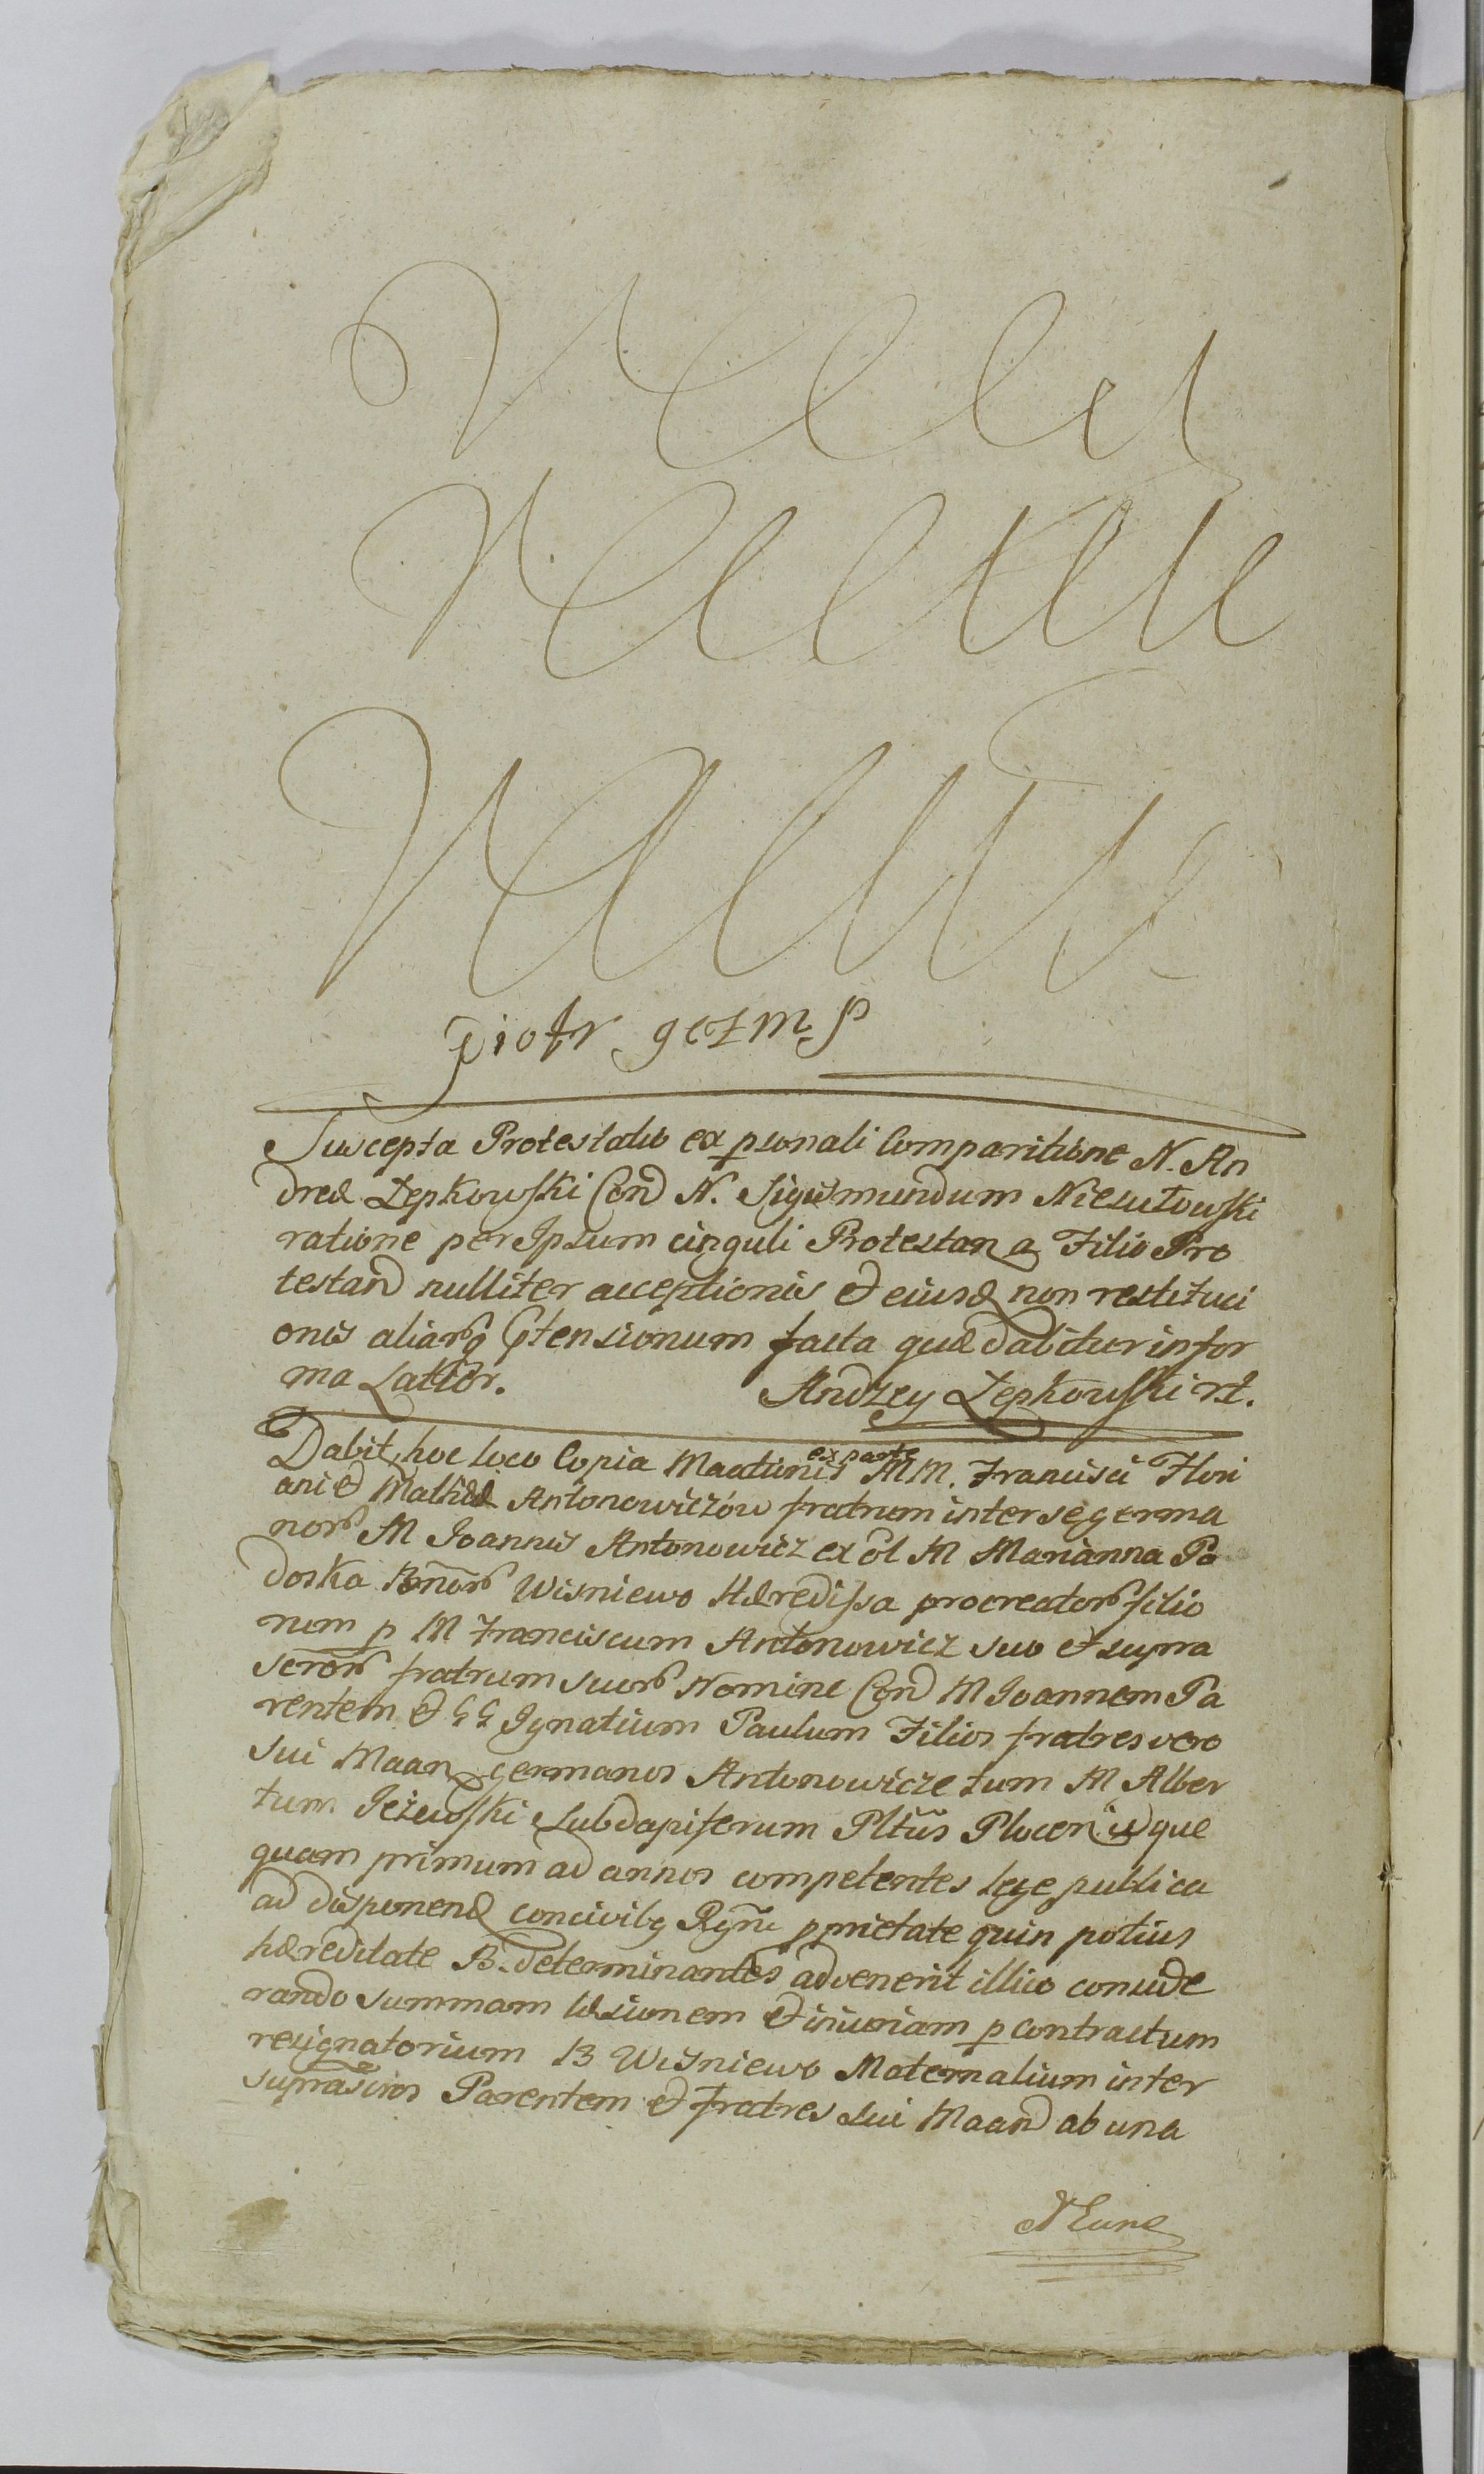 piotr gczm p
Suscepta Protestatio ex psonali Comparitione N. An
dreæ Lepkowski Con N. Sigismundum Niesułowski
ratione per Ipsum cinguli Protestan a Filio Pro
testan nulliter acceptionis et eiusd non restituci
onis aliarq Ptensionum facta quæ dabitur in for
ma Latior. Andrzey Lepkowski rt.
Dabit hoc loco Copia Maōtionis ex parte MM. Francisci Flori
ani et Mathiæ Antonowiczów fratrum inter se germa
nor M Joannis Antonowicz ex ol M Marianna Pa
doska Bonor Wisniewo Hæredissa procreator filio
rum p M Franciscum Antonowicz suo et supra
scror fratrum suor Nomine Con M Joannem Pa
rentem et GG Ignatium Paulum Filios fratres vero
sui Maan germanos Antonowicze tum M Alber
tum Jeżewski Subdapiferum Pltus Plocen idque
quam primum ad annos competentes lege publica
ad disponend concivibq Rgni pprietate quin potius
hæreditate B. determinantes advenerit illico conside
rando summam læsionem et iniuriam p contractum
resignatorium B Wisniewo Maternalium inter
suprascrios Parentem et fratres sui Maand ab una